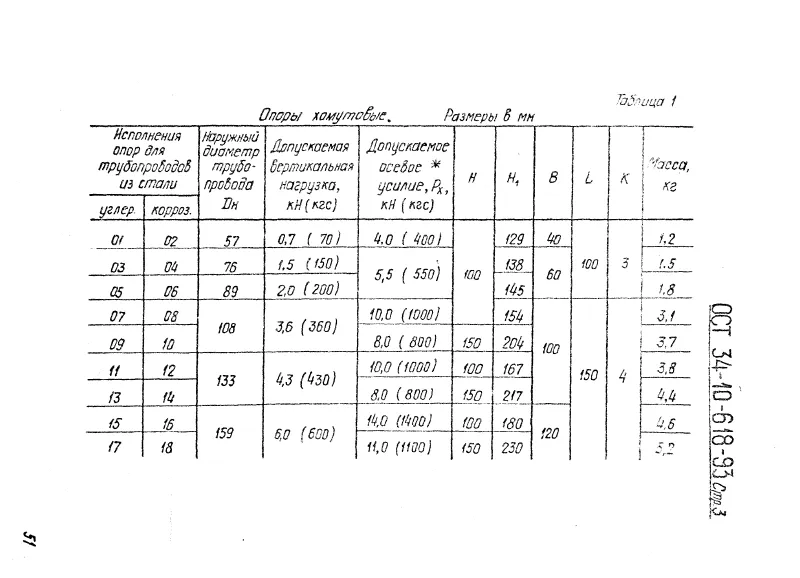 Таблица 1
Опоры хомутовые. Размеры в мм
Исполнения опор для трубопроводов из стали | Наружный диаметр трубопровода Dн | Допускаемая вертикальная нагрузка, кН (кгс) | Допускаемое осевое * усилие, Рх, кН (кгс) | H | H1 | B | L | K | Масса, кг
углер. | корроз.
01 02 57 0,7 ( 70) 4.0 ( 400) 100 129 40 100 3 1.2
03 04 76 1.5 (150) 5,5 ( 550) 138 60 1.5
05 06 89 2,0 (200) 145 1,8
07 08 108 3,6 (360) 10,0 (1000) 154 100 150 4 3,1
09 10 8,0 ( 800) 150 204 3,7
11 12 133 4,3 (430) 10,0 (1000) 100 167 3,8
13 14 8.0 ( 800) 150 217 4,4
15 16 159 6,0 (600) 14,0 (1400) 100 180 120 4,6
17 18 11,0 (1100) 150 230 5,2
ОСТ 34-10-618-93 Стр.3
51